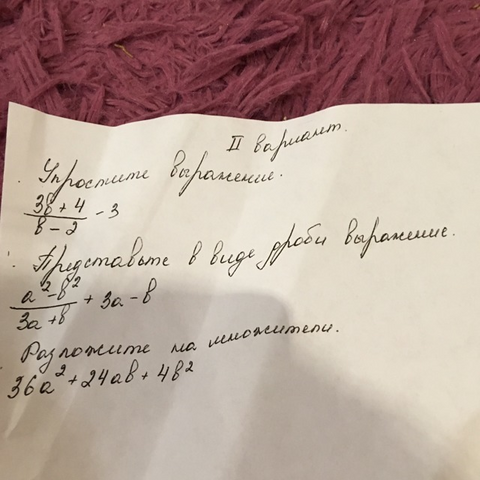 II вариант.
. Упростите выражение.
3в + 4
в - 2
- 3
. Представьте в виде дроби выражение.
a² - в²
3a + в
+ 3a - в
Разложите на множители.
36a² + 24aв + 4в²